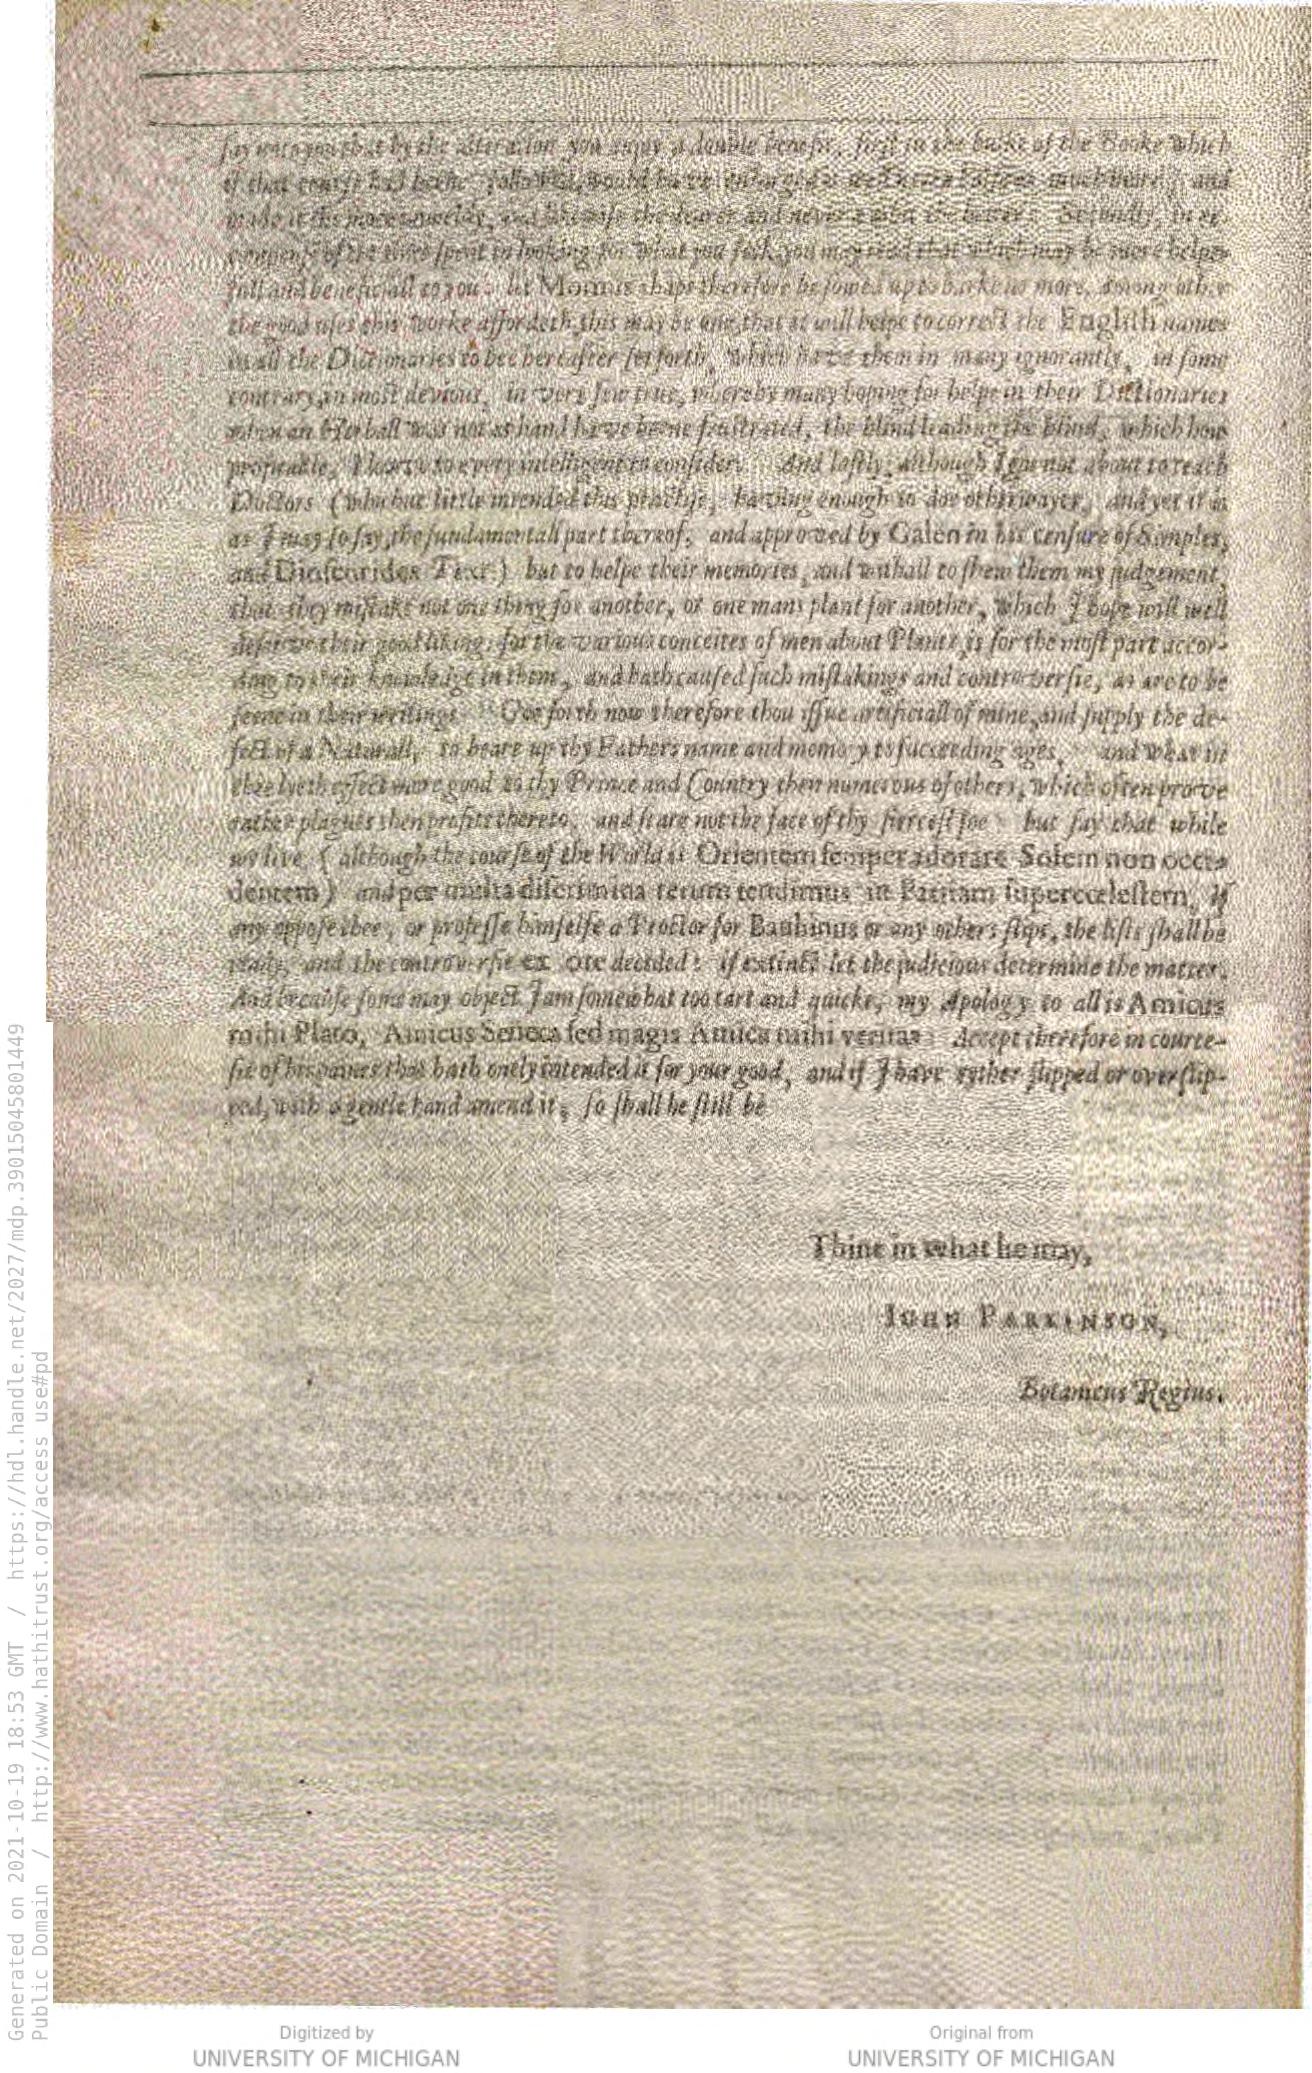 say unto you that by the alteration you enjoy a double benefit, first in the bulke of the Booke which
if that course had beene followed, would have much more, and
made it the more unweldy, and likewise the dearer and never the better: Secondly, in re-
compense of the time spent in looking for what you seek, you may read that which may be more help-
full and beneficiall to you: let Momus chaps therefore be sowed up to barke no more. Among other
the good uses this Worke affordeth, this may be one, that it will helpe to correct the English names
in all the Dictionaries to bee hereafter set forth, which have them in many ignorantly, in some
contrary, in most devious, in very few true, whereby many hoping for helpe in their Dictionaries
when an Herball was not at hand have beene frustrated, the blind leading the blind, which how
profitable, I leave to every intelligent to consider. And lastly, although I goe not about to teach
Doctors (who but little intended this practise, having enough to doe otherwayes, and yet it is
as I may so say, the fundamentall part thereof, and approoved by Galen in his censure of Simples,
and Dioscorides Text) but to helpe their memories, and withall to shew them my judgement,
that they mistake not one thing for another, or one mans plant for another, which I hope will well
deserve their good liking: for the various conceites of men about Plants, is for the most part accor-
ding to their knowledge in them, and hath caused such mistakings and controversie, as are to be
seene in their writings. Goe forth now therefore thou issue artificiall of mine, and supply the de-
fect of a Naturall, to beare up thy Fathers name and memory to succeeding ages, and what in
thee lyeth effect more good to thy Prince and Country then numerous of others, which often proove
rather plagues then profits thereto, and feare not the face of thy fiercest foe but say that while
we live (although the course of the World is Orientem semper adorare Solem non occi-
dentem) and per multa discrimina rerum tendimus in Patriam supercœlestem, If
any oppose thee, or professe himselfe a Proctor for Bauhinus or any others slips, the lists shall be
ready, and the controversie ex ore decided: if extinct let the judicious determine the matter.
And because some may object I am somewhat too tart and quicke, my Apology to all is Amicus
mihi Plato, Amicus Seneca sed magis Amica mihi veritas: Accept therefore in courte-
sie of his paines that hath onely intended it for your good, and if I have eyther slipped or overslip-
ped, with a gentle hand amend it, so shall he still be
Thine in what he may,
IOHN PARKINSON,
Botanicus Regius.
Generated on 2021-10-19 18:53 GMT / https://hdl.handle.net/2027/mdp.39015045801449
Public Domain / http://www.hathitrust.org/access_use#pd
Digitized by
UNIVERSITY OF MICHIGAN
Original from
UNIVERSITY OF MICHIGAN